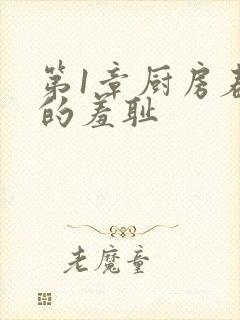 第1章厨房
的羞耻
老魔童